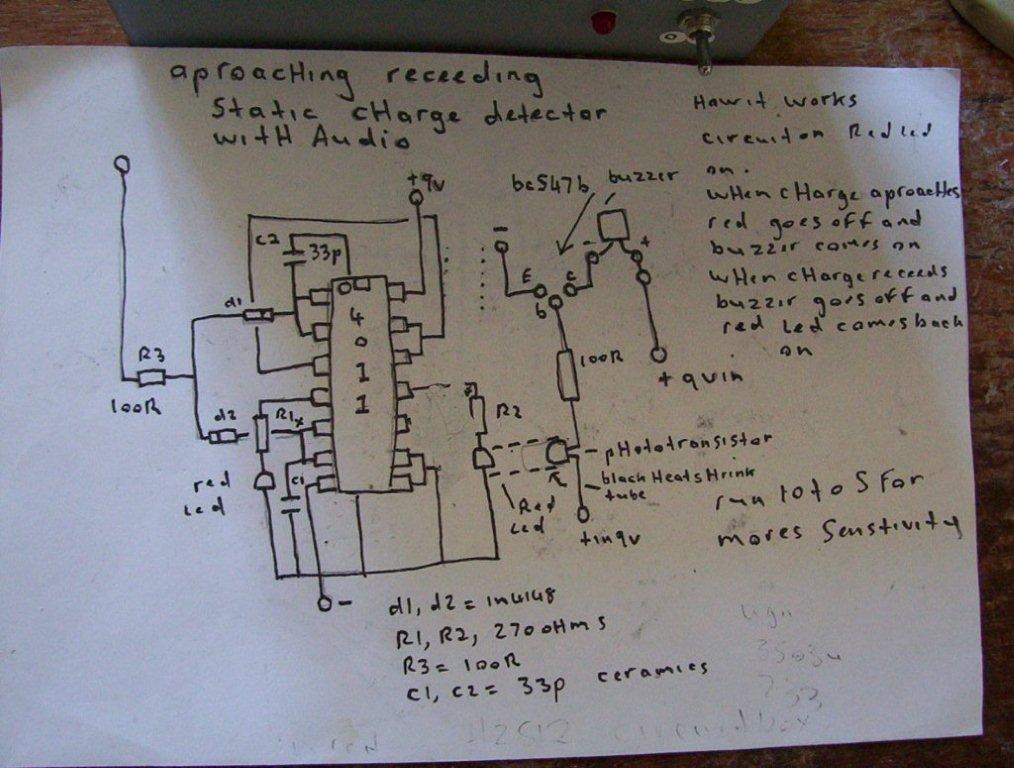 aproacHing receeding
Static cHarge detector
witH Audio
Howit works
circuiton Red led
on.
wHen cHarge aproacHes
red goes off and
buzzer comes on
wHen cHarge receeds
buzzer goes off and
red led comes back
on
+9v
bc547b
buzzer
C2
33p
-
+
E
c
b
d1
4
0
1
1
R3
100R
100R
+ 9vin
d2
R1
R2
pHototransistor
red
led
C1
black HeatsHrink
tube
Red
Led
+in9v
run 10 to 0 S For
mores Senstivity
-
d1, d2 = 1n4148
R1, R2, 270 oHms
R3 = 100R
C1, C2 = 33p ceramics